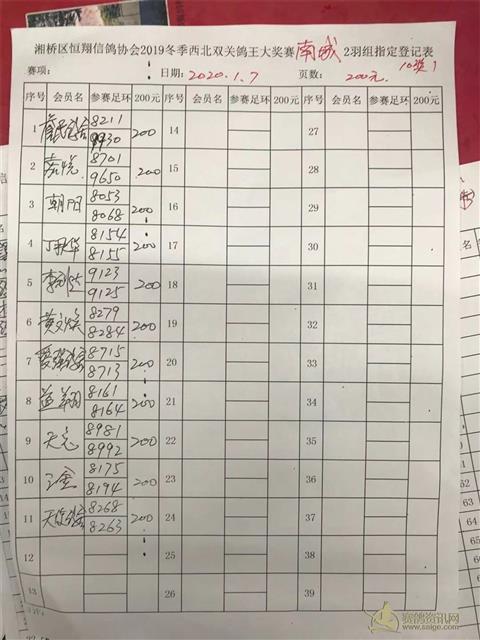 湘桥区恒翔信鸽协会2019冬季西北双关鸽王大奖赛 南城 2羽组指定登记表
赛项： 日期：2020.1.7 页数： 200元 10奖1
序号 会员名 参赛足环 200元 序号 会员名 参赛足环 200元 序号 会员名 参赛足环 200元
1 8211 9930 200 14 27
2 嘉悦 8701 9650 200 15 28
3 朝阳 8053 8068 200 16 29
4 8154 8155 200 17 30
5 9123 9125 200 18 31
6 黄文焕 8279 8284 200 19 32
7 8715 8713 200 20 33
8 益翔 8161 8164 200 21 34
9 8981 8992 200 22 35
10 8175 8194 200 23 36
11 8268 8263 200 24 37
12 25 38
13 26 39
赛鸽资讯网
www.saige.com